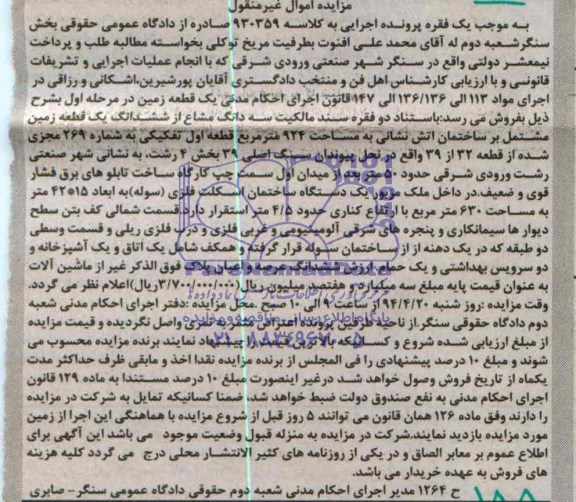 مزایده اموال غیرمنقول
به موجب یک فقره پرونده اجرایی به کلاسه ۹۳۰۳۵۹ صادره از دادگاه عمومی حقوقی بخش
سنگرشعبه دوم له آقای محمد علی افنوت بطرفیت مریخ توکلی بخواسته مطالبه طلب و پرداخت
نیمعشر دولتی واقع در سنگر شهر صنعتی ورودی شرقی که با انجام عملیات اجرایی و تشریفات
قانونی و با ارزیابی کارشناس اهل فن و منتخب دادگستری آقایان پورشیرین،اشکانی ورزاقی در
اجرای مواد ۱۱۳ الی ۱۳۶/۱۳۶ الی ۱۴۷ قانون اجرای احکام مدنی یک قطعه زمین در مرحله اول بشرح
ذیل بفروش می رسد:باستناد دو فقره سند مالکیت سه دانگ مشاع از ششدانگ یک قطعه زمین
مشتمل بر ساختمان اتش نشانی به مساحت ۹۲۴ مترمربع قطعه اول تفکیکی به شماره ۲۶۹ مجزی
شده از قطعه ۳۲ از ۳۹ واقع در نخل پیوندان سنگ اصلی ۳۹ بخش ۴ رشت، به نشانی شهر صنعتی
رشت ورودی شرقی حدود ۵۰ متر بعد از میدان اول سمت چپ کارگاه ساخت تابلو های برق فشار
قوی و ضعیف.در داخل ملک مزبور یک دستگاه ساختمان اسکلت فلزی (سوله)به ابعاد ۱۵*۴۲ متر
به مساحت ۶۳۰ متر مربع با ارتفاع کناری حدود ۴/۵ متر استقرار دارد.قسمت شمالی کف بتن سطح
دیوار ها سیمانکاری و پنجره های شرقی آلومینیومی و غربی فلزی و درب فلزی ریلی و قسمت وسطی
دو طبقه که در یک دهنه از از ساختمان سوله قرار گرفته و همکف شامل یک آتاق و یک آشپزخانه و
دو سرویس بهداشتی و یک حمام ارزش ششدانگ عرصه و اعیان پلاک فوق الذکر غیر از ماشین آلات
به عنوان قیمت پایه مبلغ سه میلیارد و هفتصد میلیون ریال(۳/۷۰۰/۰۰۰/۰۰۰ریال)اعلام نظر می گردد.
وقت مزایده :روز شنبه ۹۴/۴/۲۰ از ساعت ۹ الی ۱۰ صبح .محل مزایده :دفتر اجرای احکام مدنی شعبه
دوم دادگاه حقوقی سنگر.از ناحیه طرفین پرونده اعتراض واصل نگردیده و قیمت مزایده
از مبلغ ارزیابی شده شروع و کسانیکه بالاترین قیمت را پیشنهاد نمایند برنده مزایده محسوب می
شوند و مبلغ ۱۰ درصد پیشنهادی را فی المجلس از برنده مزایده نقدا اخذ و مابقی ظرف حداکثر مدت
یکماه از تاریخ فروش وصول خواهد شد درغیر اینصورت مبلغ ۱۰ درصد مستندا به ماده ۱۲۹ قانون
اجرای احکام مدنی به نفع صندوق دولت ضبط خواهد شد. ضمنا کسانیکه تمایل به شرکت در مزایده
را دارند وفق ماده ۱۲۶ همان قانون می توانند ۵ روز قبل از شروع مزایده با هماهنگی این اجرا از زمین
مورد مزایده بازدید نمایند.شرکت در مزایده به منزله قبول وضعیت موجود می باشد این آگهی برای
اطلاع عموم بر معابر الصاق و در یکی از روزنامه های کثیر الانتشار محلی درج می گردد کلیه هزینه
های فروش به عهده خریدار می باشد.
ح ۱۲۶۴ مدیر اجرای احکام مدنی شعبه دوم حقوقی دادگاه عمومی سنگر- صابری